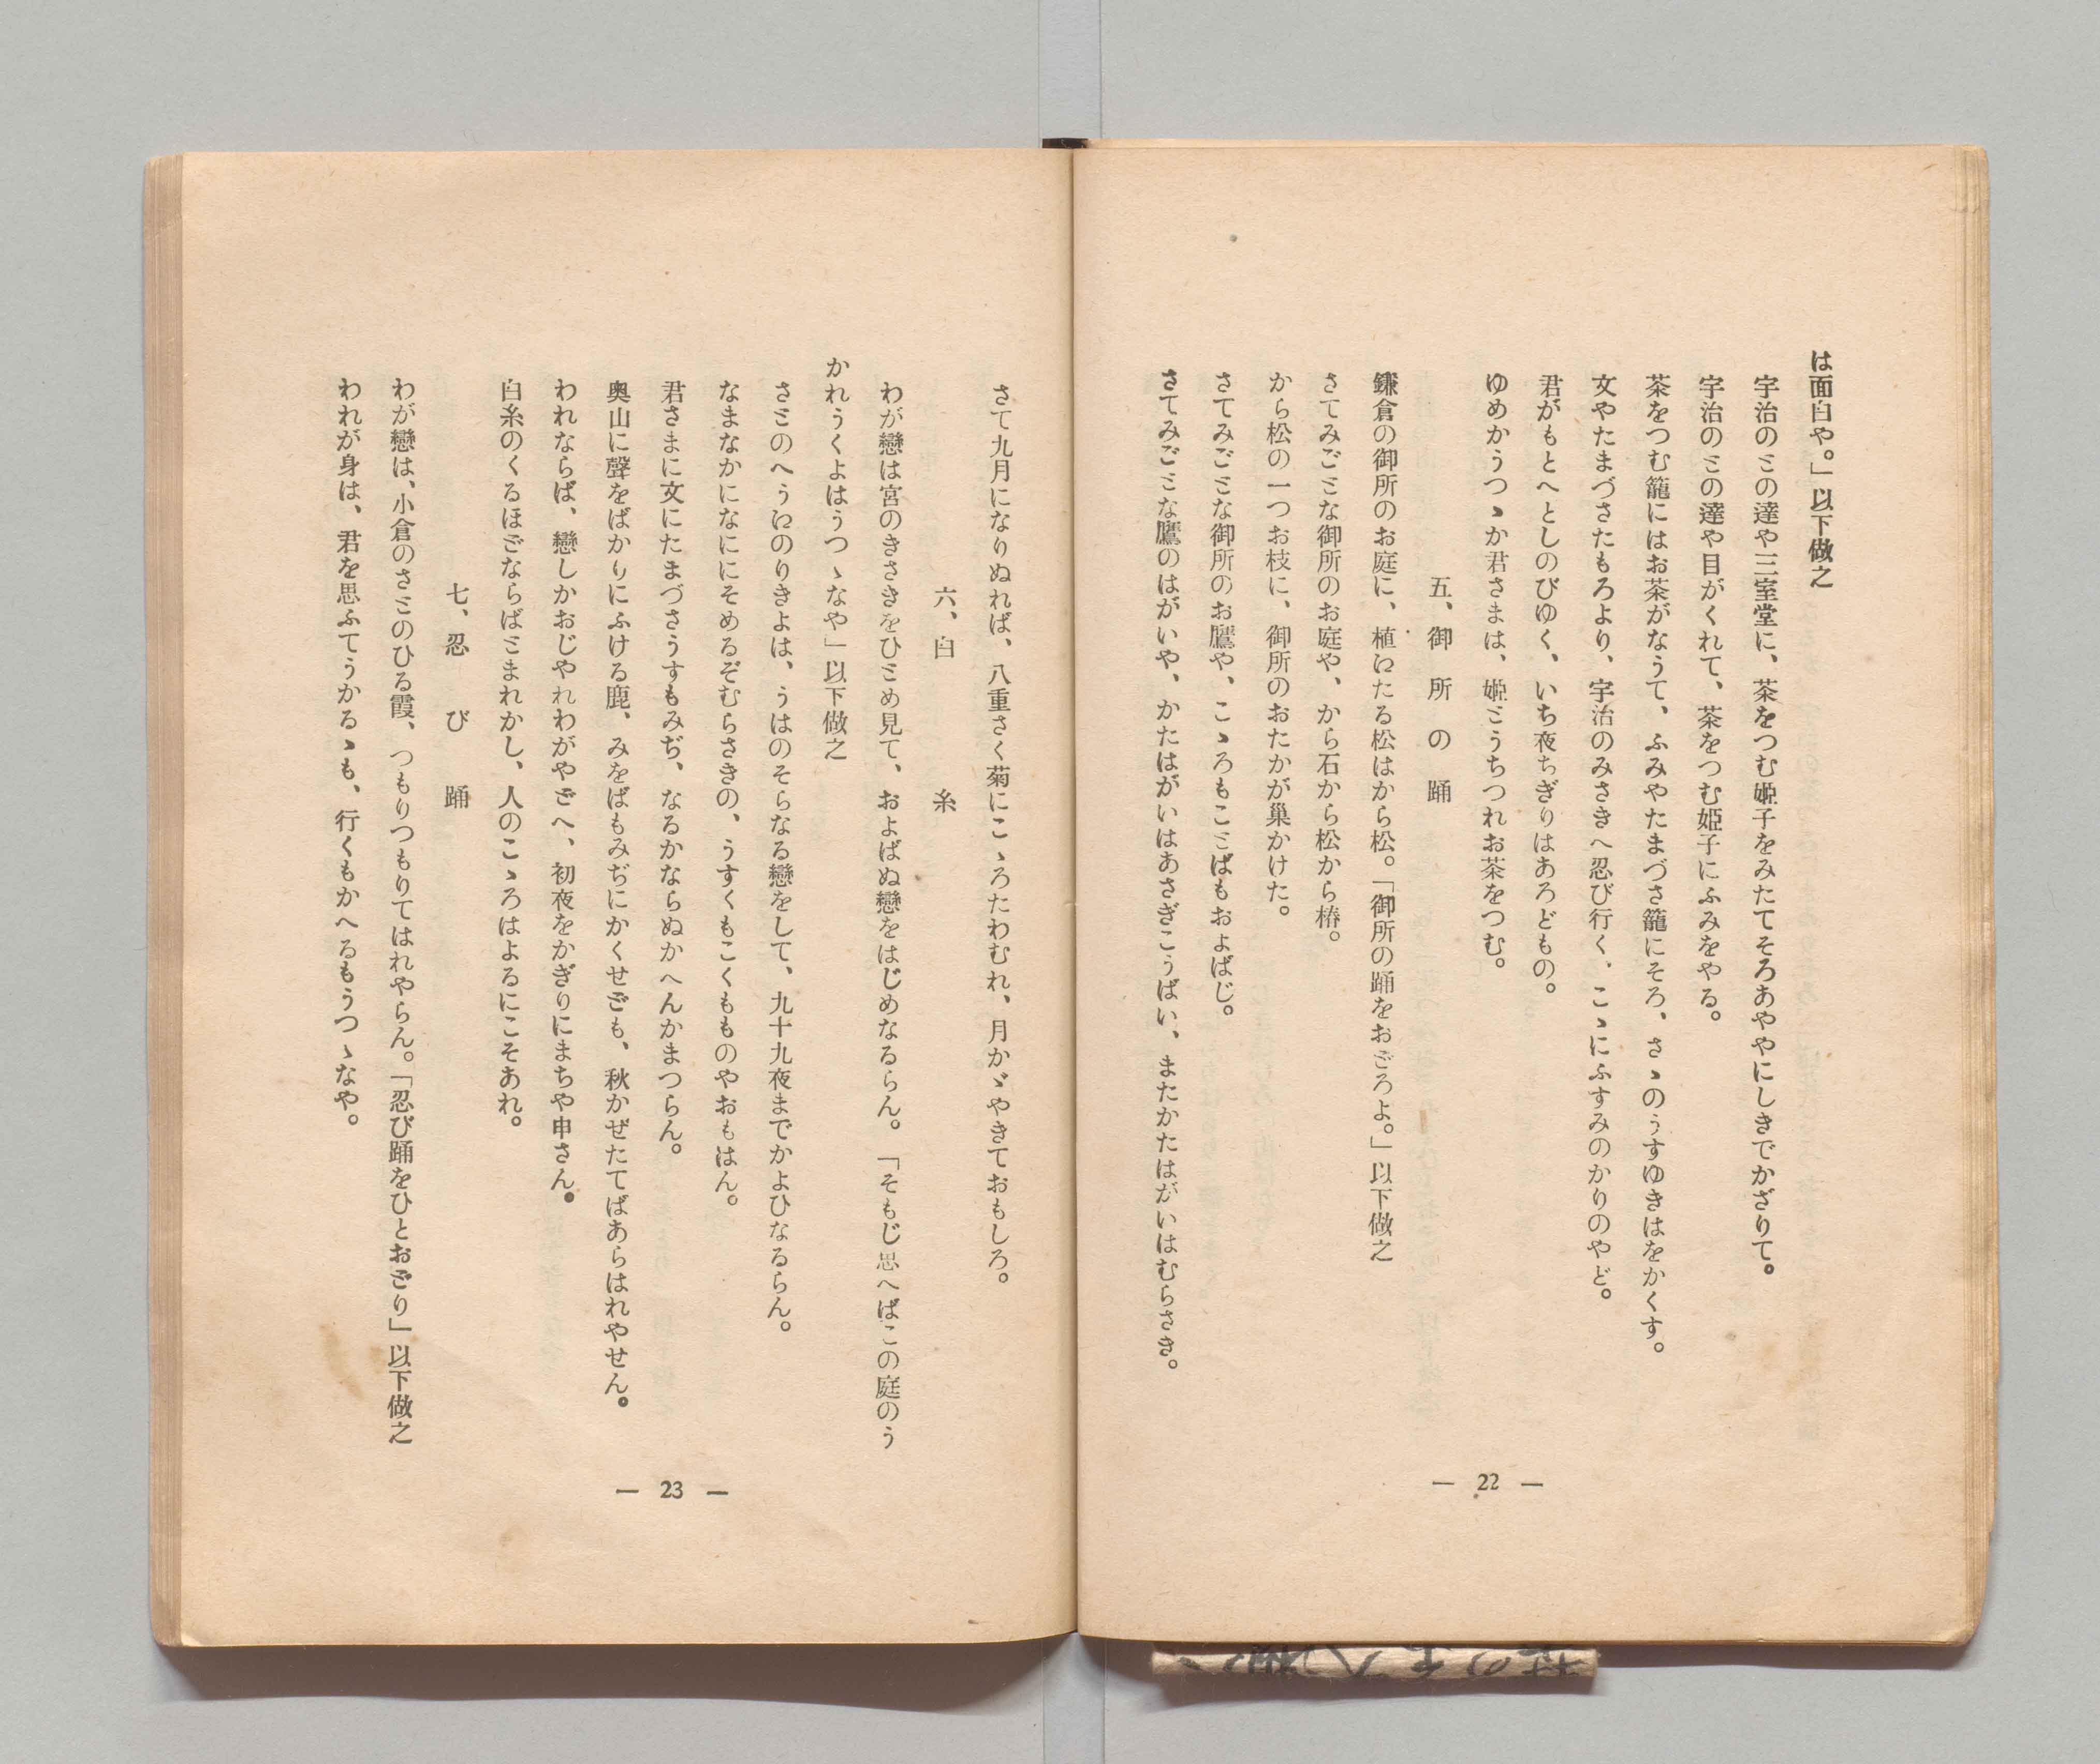 は面白や。」以下做之
宇治のミの達や三室堂に、茶をつむ姫子をみたてそろあややにしきでかざりて。
宇治のミの達や目がくれて、茶をつむ姫子にふみをやる。
茶をつむ籠にはお茶がなうて、ふみやたまづさ籠にそろ、さゝのうすゆきはをかくす。
文やたまづさたもろより、宇治のみさきへ忍び行く、こゝにふすみのかりのやど。
君がもとへとしのびゆく、いち夜ちぎりはあろどもの。
ゆめかうつゝか君さまは、姫とうちつれお茶をつむ。
五、御所の踊
鎌倉の御所のお庭に、植ゑたる松はから松。「御所の踊をおどろよ。」以下做之
さてみごとな御所のお庭や、から石から松から椿。
から松の一つお枝に、御所のおたかが巣かけた。
さてみごとな御所のお鷹や、こゝろもことばもおよばじ。
さてみごとな鷹のはがいや、かたはがいはあさぎこうばい、またかたはがいはむらさき。
― 22 ―
さて九月になりぬれば、八重さく菊にこゝろたわむれ、月かゞやきておもしろ。
六、白糸
わが戀は宮のきさきをひとめ見て、およばぬ戀をはじめなるらん。「そもじ思へばこの庭のう
かれうくよはうつゝなや」以下做之
さとのへうゑのりきよは、うはのそらなる戀をして、九十九夜までかよひなるらん。
なまなかになににそめるぞむらさきの、うすくもこくもものやおもはん。
君さまに文にたまづさうすもみぢ、なるかならぬかへんかまつらん。
奥山に聲をばかりにふける鹿、みをばもみぢにかくせども、秋かぜたてばあらはれやせん。
われならば、戀しかおじやれわがやどへ、初夜をかぎりにまちや申さん。
白糸のくるほどならばとまれかし、人のこゝろはよるにこそあれ。
七、忍び踊
わが戀は、小倉のさとのひる霞、つもりつもりてはれやらん。「忍び踊をひとおどり」以下做之
われが身は、君を思ふてうかるゝも、行くもかへるもうつゝなや。
― 23 ―